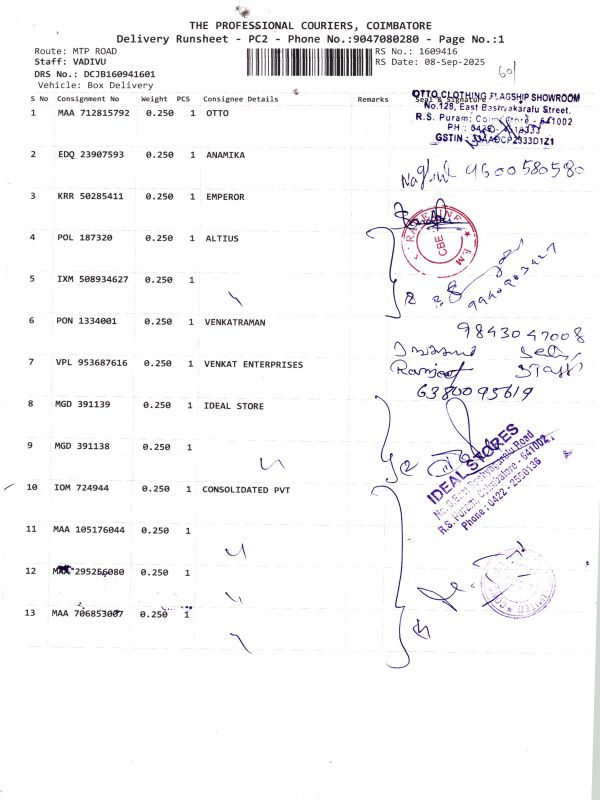 THE PROFESSIONAL COURIERS, COIMBATORE
Delivery Runsheet - PC2 - Phone No.:9047080280 - Page No.:1
Route: MTP ROAD RS No.: 1609416
Staff: VADIVU RS Date: 08-Sep-2025
DRS No.: DCJB160941601
Vehicle: Box Delivery
60/
S No Consignment No Weight PCS Consignee Details Remarks Seal & Signature
1 MAA 712815792 0.250 1 OTTO
OTTO CLOTHING FLAGSHIP SHOWROOM
No.128, East Bashyakaralu Street,
R.S. Puram, Coimbatore - 641002
PH : 0422 -
GSTIN :
2 EDQ 23907593 0.250 1 ANAMIKA
9600580580
3 KRR 50285411 0.250 1 EMPEROR
4 POL 187320 0.250 1 ALTIUS
CBE
5 IXM 508934627 0.250 1
6 PON 1334001 0.250 1 VENKATRAMAN
9843047008
7 VPL 953687616 0.250 1 VENKAT ENTERPRISES
6380095619
8 MGD 391139 0.250 1 IDEAL STORE
9 MGD 391138 0.250 1
IDEAL STORES
R.S. Puram, Coimbatore - 641002
Phone : 0422 - 2550136
10 IOM 724944 0.250 1 CONSOLIDATED PVT
11 MAA 105176044 0.250 1
12 MAA 295256080 0.250 1
13 MAA 706853007 0.250 1